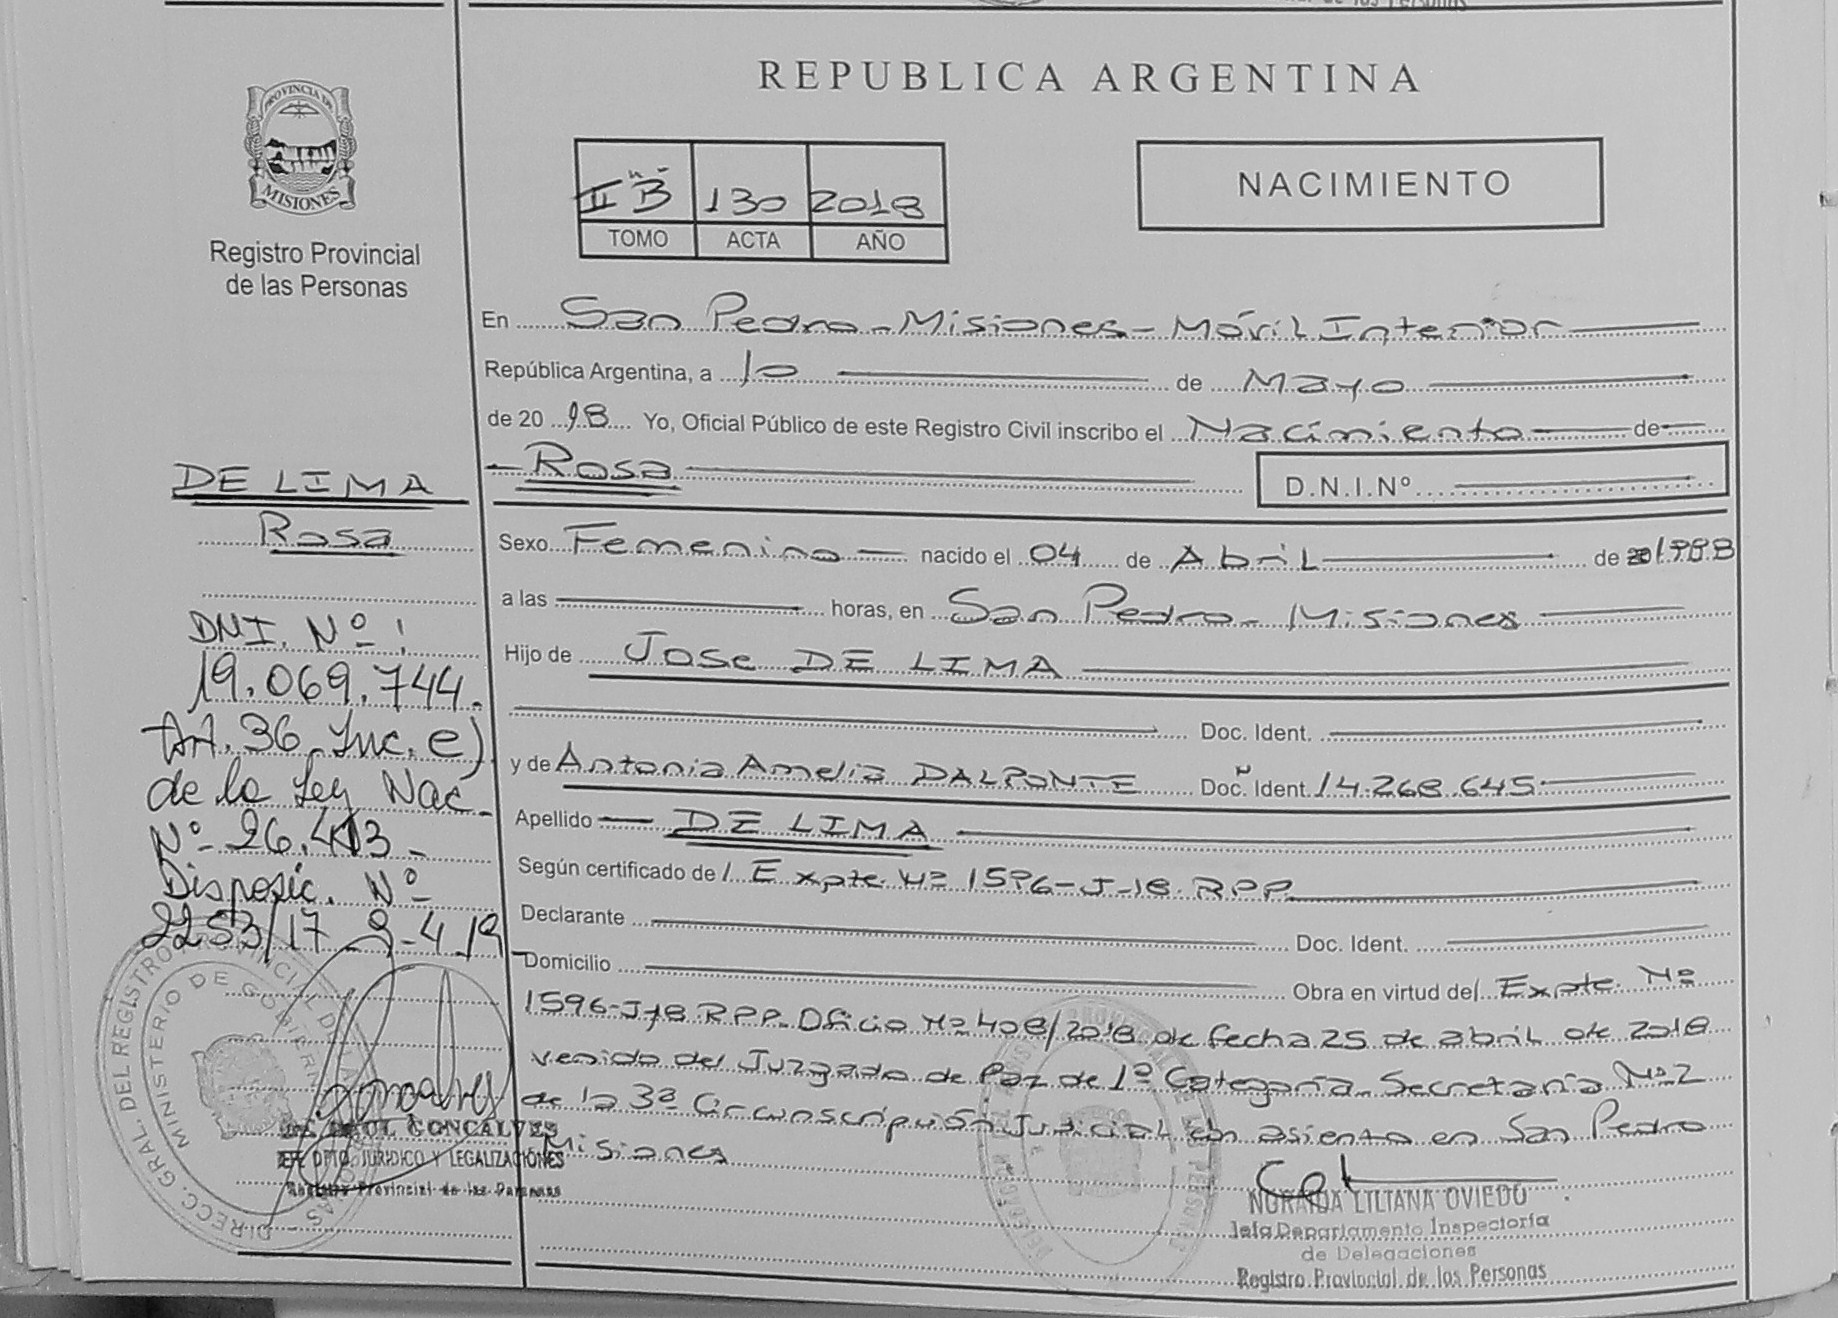 REPUBLICA ARGENTINA
PROVINCIA DE
MISIONES
Registro Provincial
de las Personas
II "B" 130 2018
TOMO ACTA AÑO
NACIMIENTO
En San Pedro - Misiones - Móvil Interior
República Argentina, a 10 de Mayo
de 20 18 Yo, Oficial Público de este Registro Civil inscribo el Nacimiento de
Rosa D.N.I.Nº
Sexo Femenino nacido el 04 de Abril de 1988
a las horas, en San Pedro - Misiones
Hijo de Jose DE LIMA
Doc. Ident.
y de Antonia Amelia DALPONTE Doc. Ident. 14.268.645
Apellido DE LIMA
Según certificado de Expte Nº 1596-J-18 RPP
Declarante Doc. Ident.
Domicilio Obra en virtud del Expte. Nº
1596-J-18 RPP. Oficio Nº 408/2018 de fecha 25 de abril de 2018
venido del Juzgado de Paz de 1º Categoría Secretaría Nº 2
de la 3ª Circunscripción Judicial con asiento en San Pedro
Misiones
NORAIDA LILIANA OVIEDO
Jefa Departamento Inspectoría
de Delegaciones
Registro Provincial de las Personas
DE LIMA
Rosa
DNI. Nº:
19.069.744.
Art. 36 Inc. e)
de la Ley Nac.
Nº 26.413 -
Disposic. Nº
2253/17 9-4-19
GONCALVES
JEFE DPTO. JURIDICO Y LEGALIZACIONES
Registro Provincial de las Personas
DIRECC. GRAL. DEL REGISTRO PROVINCIAL DE LAS PERSONAS
MINISTERIO DE GOBIERNO